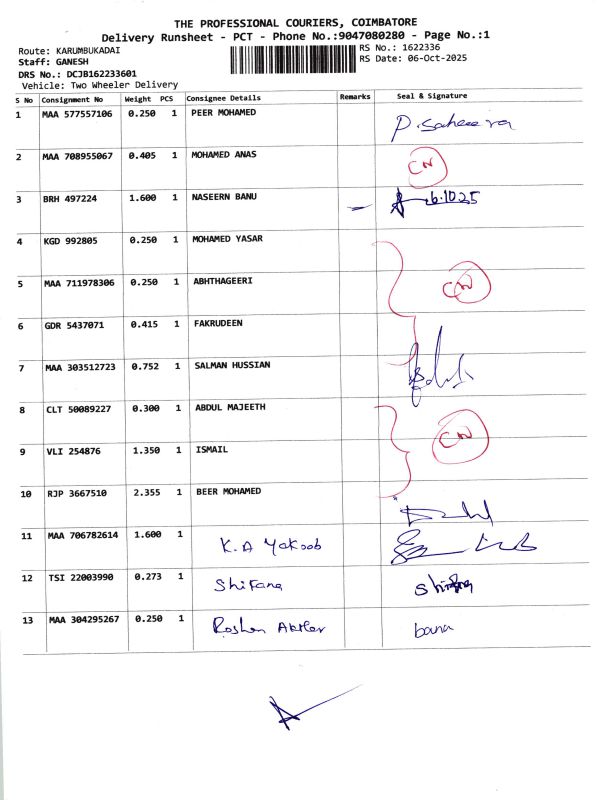 THE PROFESSIONAL COURIERS, COIMBATORE
Delivery Runsheet - PCT - Phone No.:9047080280 - Page No.:1
Route: KARUMBUKADAI
RS No.: 1622336
Staff: GANESH
RS Date: 06-Oct-2025
DRS No.: DCJB162233601
Vehicle: Two Wheeler Delivery
S No Consignment No Weight PCS Consignee Details Remarks Seal & Signature
1 MAA 577557106 0.250 1 PEER MOHAMED P. Saheera
2 MAA 708955067 0.405 1 MOHAMED ANAS CN
3 BRH 497224 1.600 1 NASEERN BANU 6.10.25
4 KGD 992805 0.250 1 MOHAMED YASAR
5 MAA 711978306 0.250 1 ABHTHAGEERI CN
6 GDR 5437071 0.415 1 FAKRUDEEN
7 MAA 303512723 0.752 1 SALMAN HUSSIAN
8 CLT 50089227 0.300 1 ABDUL MAJEETH
9 VLI 254876 1.350 1 ISMAIL CN
10 RJP 3667510 2.355 1 BEER MOHAMED
11 MAA 706782614 1.600 1 K.A Yakoob
12 TSI 22003990 0.273 1 Shifana Shifana
13 MAA 304295267 0.250 1 Roshan Akter bana